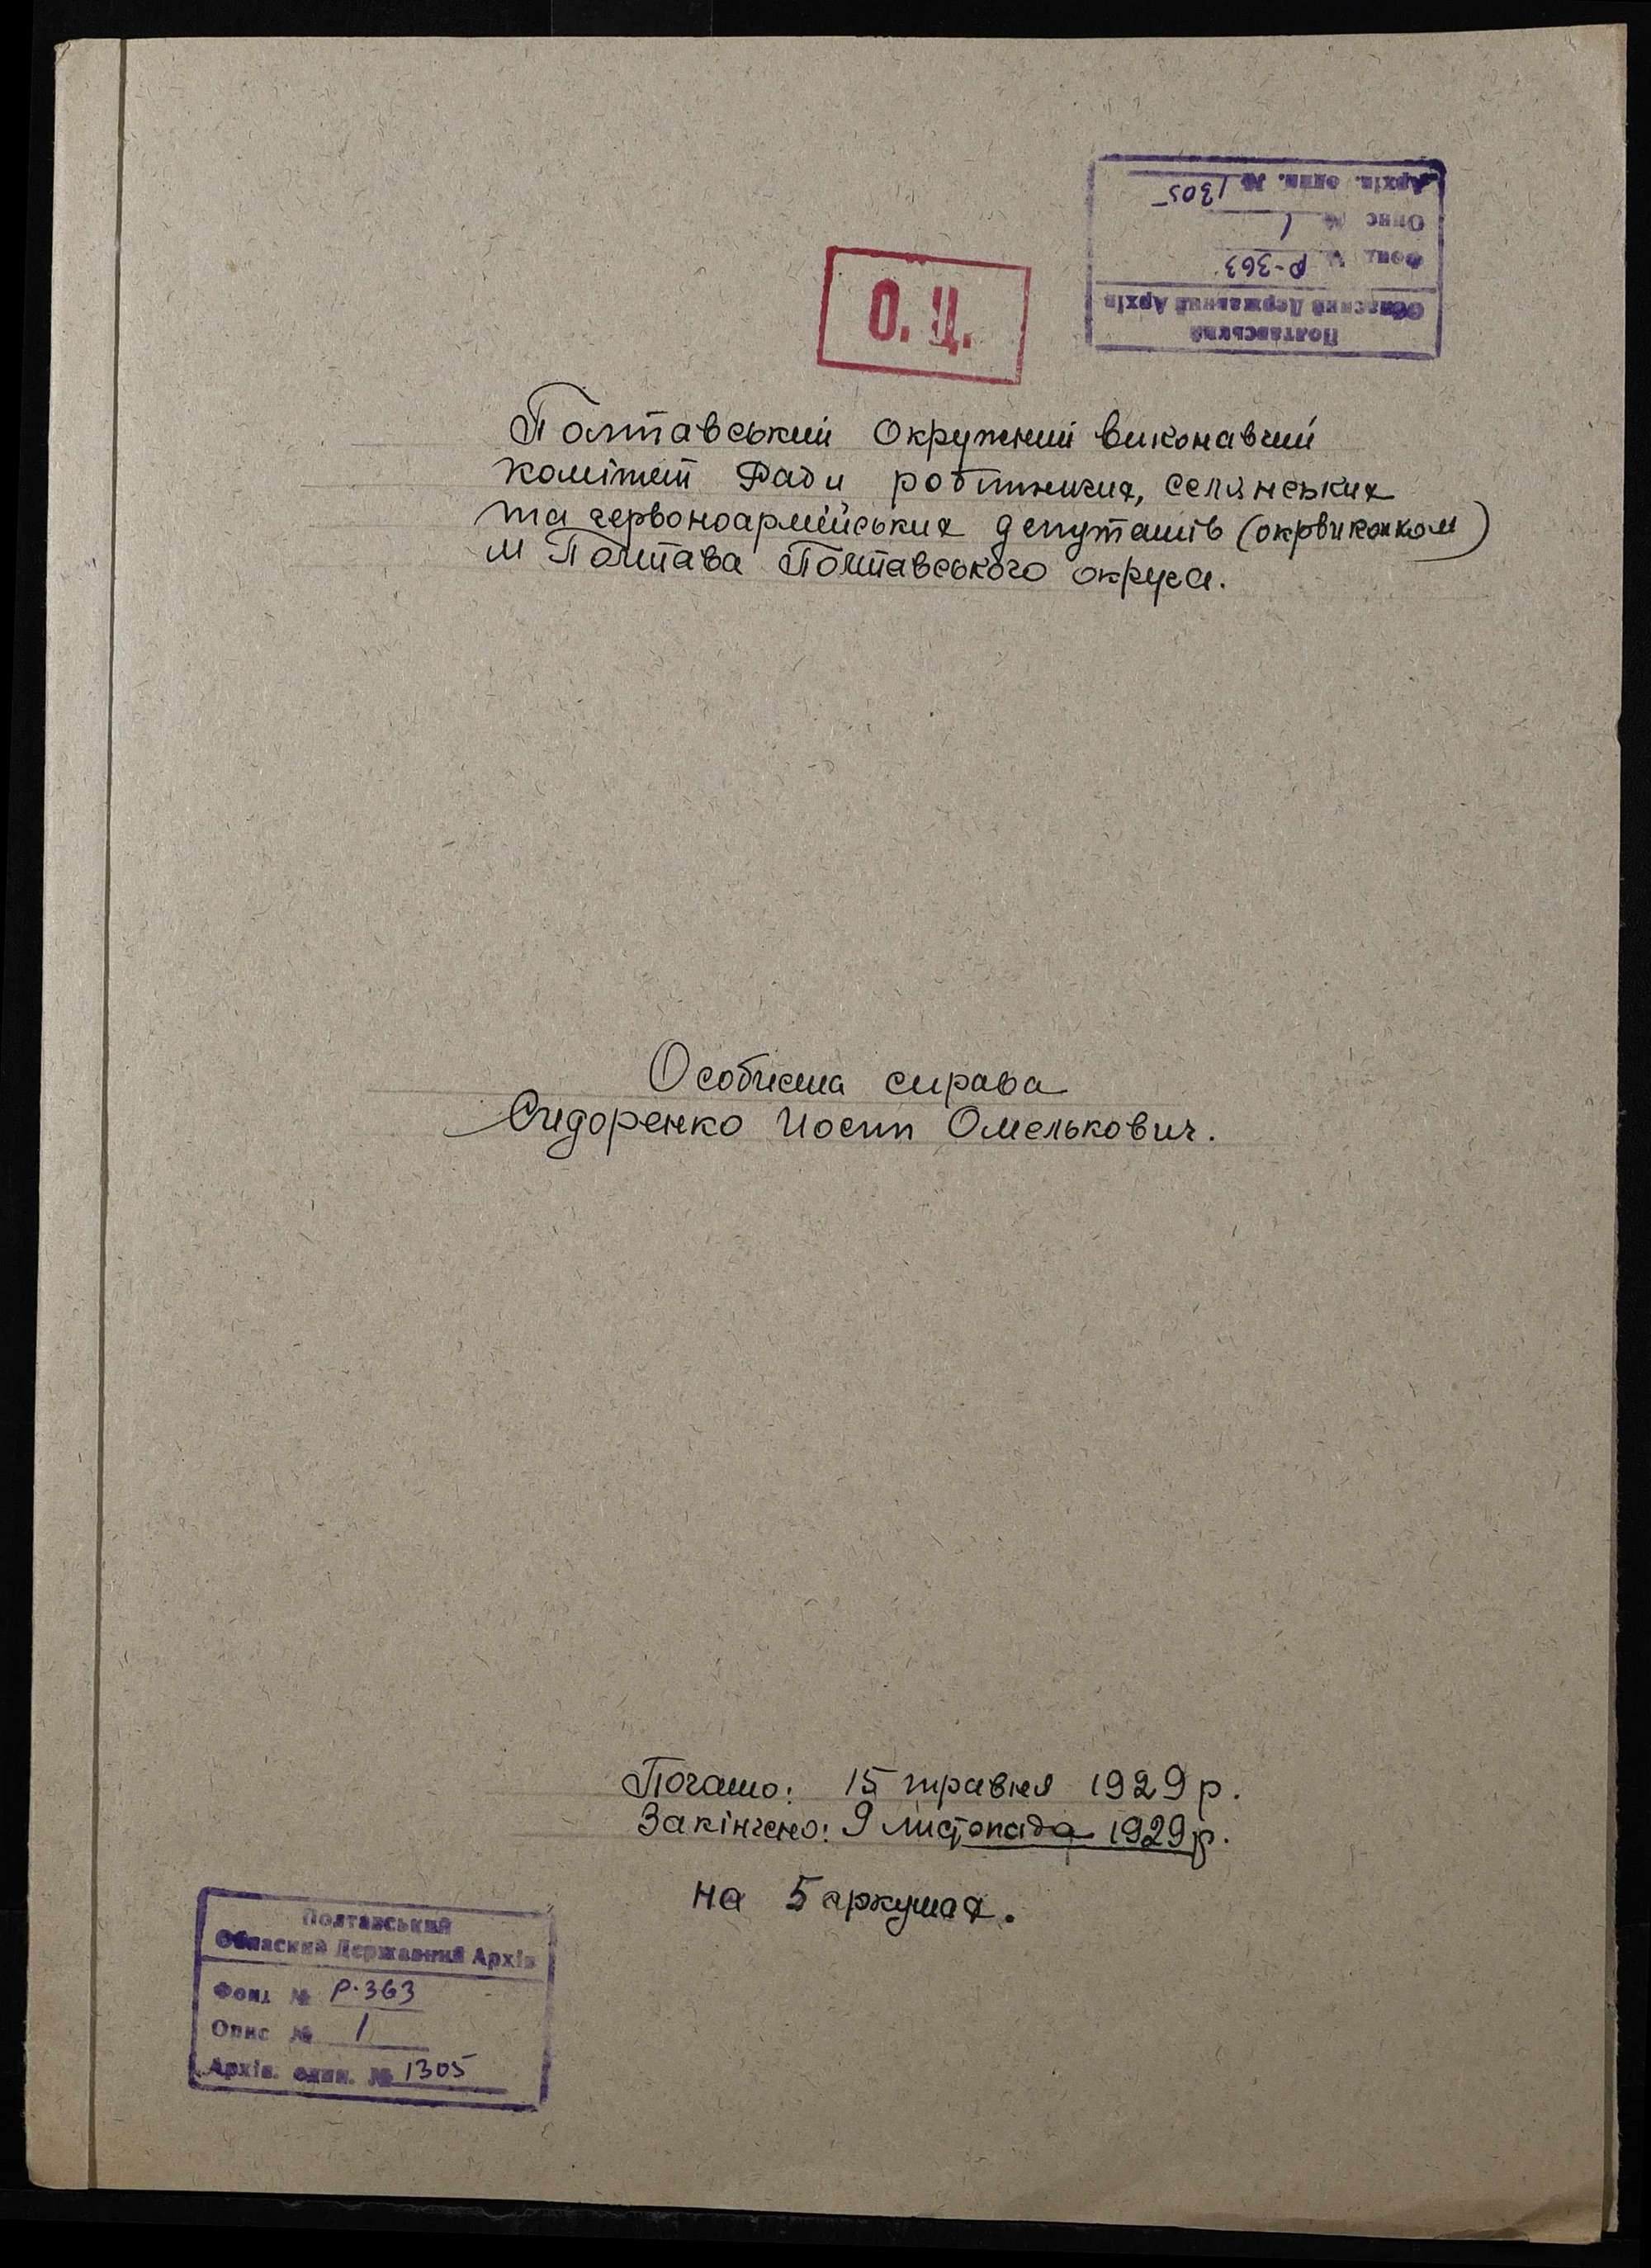 Полтавський
Обласний Державний Архів
Фонд № Р-363
Опис № 1
Архів. один. № 1305
О. Ц.
Полтавський Окружний виконавчий
комітет Ради робітничих, селянських
та червоноармійських депутатів (окрвиконком)
м Полтава Полтавського округа.
Особиста справа
Сидоренко Иосип Омелькович.
Почато: 15 травня 1929 р.
Закінчено: 9 листопада 1929 р.
на 5 аркушах.
Полтавський
Обласний Державний Архів
Фонд № Р-363
Опис № 1
Архів. один. № 1305